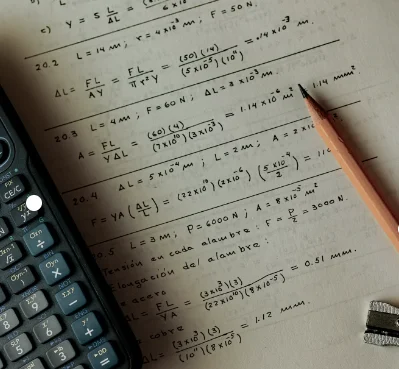 c) Y = 5 L/ΔL =
20.2 L = 14 m ; r = 4x10⁻³ m ; F = 50 N.
ΔL = FL/AY = FL/πr²Y = (50)(14)/(5x10⁻⁵)(10¹¹) = .14x10⁻³ m.
20.3 L = 4 m ; F = 60 N ; ΔL = 3x10⁻³ m.
A = FL/YΔL = (60)(4)/(7x10¹⁰)(3x10⁻³) = 1.14x10⁻⁶ m² = 1.14 mm².
20.4 ΔL = 5x10⁻⁴ m ; L = 2 m ; A = 2x10
F = YA (ΔL/L) = (22x10¹⁰)(2x10⁻⁶) (5x10⁻⁴/2) = 11
0.5 L = 3 m ; P = 6000 N ; A = 8x10⁻⁵ m²
Tensión en cada alambre : F = P/2 = 3000 N.
longación del alambre :
acero
ΔL = FL/YA = (3x10³)(3)/(22x10¹⁰)(8x10⁻⁵) = 0.51 mm.
cobre
ΔL = (3x10³)(3)/(10¹¹)(8x10⁻⁵) = 1.12 mm.
CE/C
÷
x
8
9
+
5
6